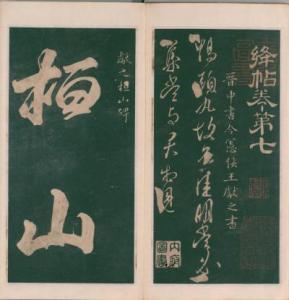 絳帖卷第七
晉中書令憲侯王獻之書
鴨頭丸故不佳明當必
集當與君相見
獻之桓山碑
桓山